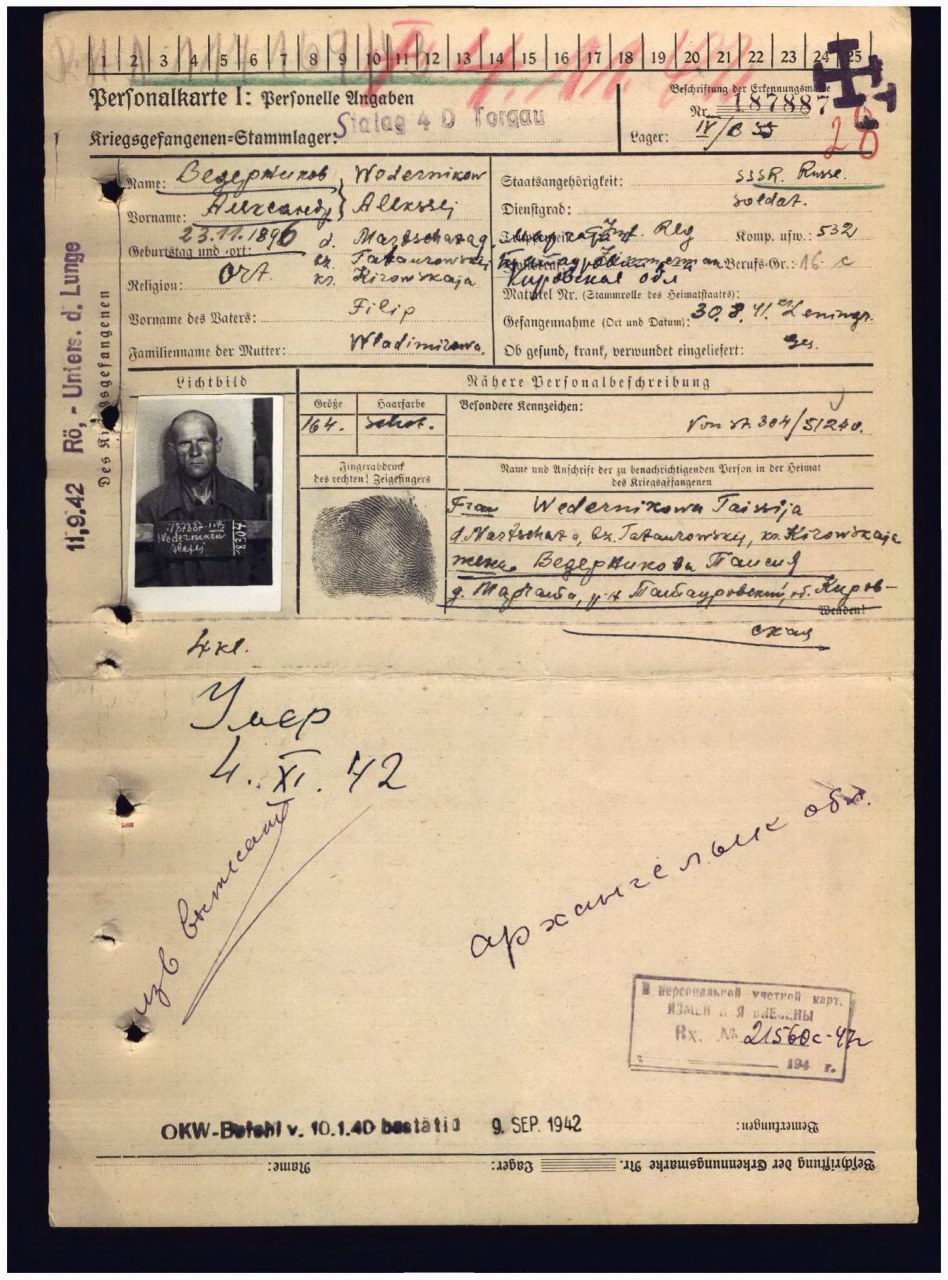 1 2 3 4 5 6 7 8 9 10 11 12 13 14 15 16 17 18 19 20 21 22 23 24 25
Personalkarte I: Personelle Angaben
Beschriftung der Erkennungsmarke
Nr. 187887
Kriegsgefangenen=Stammlager: Stalag 4 D Torgau
Lager: IV/B
28
Name: Ведерников Wedernikow
Vorname: Александр Alekssej
Geburtstag und =ort: 23.11.1896 d.
bz. Tataurowskij
Religion: Ort. kr. Kirowskaja
Vorname des Vaters: Filip
Familienname der Mutter: Wladimirowa.
Staatsangehörigkeit: SSSR. Russe.
Dienstgrad: Soldat.
Inf. Reg Komp. usw.: 532
Berufs-Gr.: 16 c
Кировская обл
Matrikel Nr. (Stammrolle des Heimatstaates):
Gefangennahme (Ort und Datum): 30.8.41. Leningr.
Ob gesund, krank, verwundet eingeliefert: ges.
11,9.42 Rö,- Unters. d. Lunge
Des Kriegsgefangenen
Lichtbild
Nähere Personalbeschreibung
Größe Haarfarbe Besondere Kennzeichen:
164. schw. von St. 304/
Fingerabdruck
des rechten! Zeigefingers
Name und Anschrift der zu benachrichtigenden Person in der Heimat
des Kriegsgefangenen
187887 IVB
Wedernikow
Alexej
Frau Wedernikowa Taissija
bz. Tataurowskij, kr. Kirowskaja
жена Ведерникова Таисия
д. р-н Татауровский, об. Киров-
Wenden!
ская
4 кл.
Умер
4. XI. 42
изв выписано
архангельск обл.
В персональной учетной карт.
ИЗМЕНЕНИЯ ВНЕСЕНЫ
Вх. № 21560с-47г
194 г.
OKW-Befehl v. 10.1.40 bestätigt 9. SEP. 1942
Bemerkungen:
Beschriftung der Erkennungsmarke Nr. Lager: Name: